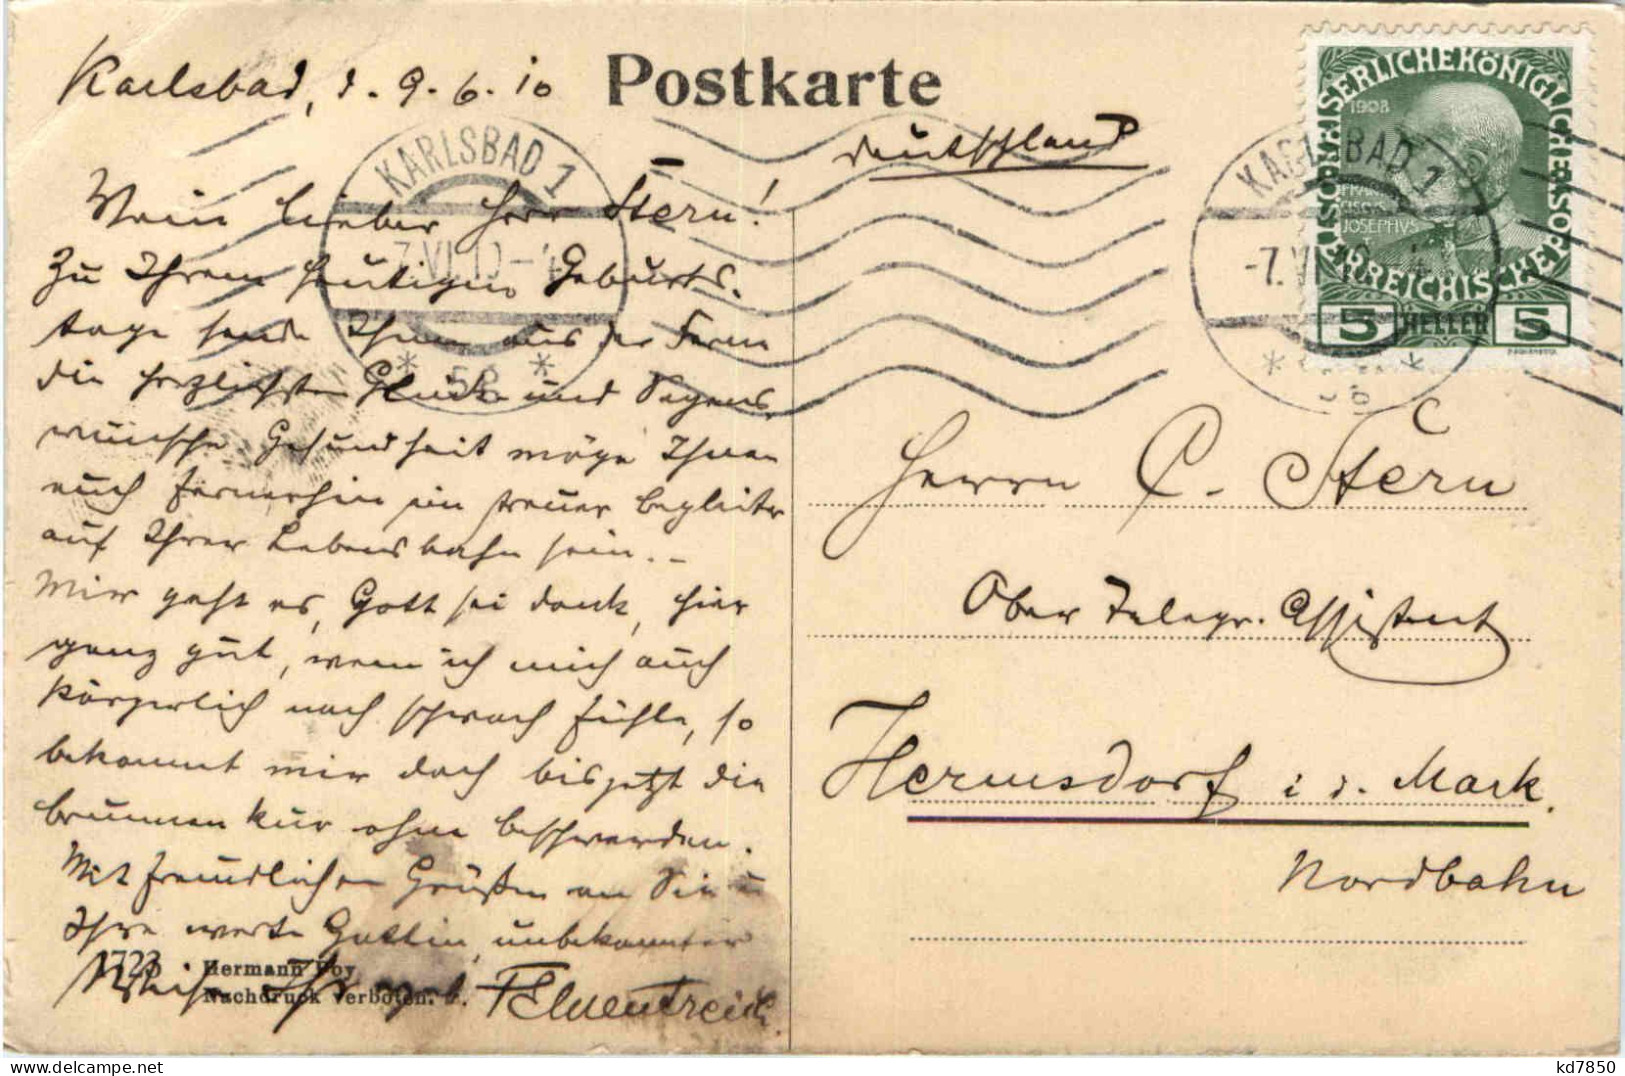 Karlsbad, d. 9.6.10
Postkarte
Deutschland
KARLSBAD 1
7.VI.10-4
* 5a *
KARLSBAD 1
-7.VI
KAISERLICHE KÖNIGLICHE
ÖSTERREICHISCHE POST
1908
FRANCISCVS
JOSEPHVS
5 HELLER 5
Mein lieber Herr Stern!
Zu Ihrem heutigen Geburts-
tage sende Ihnen aus der Ferne
die herzlichsten Glück- und Segens-
wünsche. Gesundheit möge Ihnen
auch fernerhin ein treuer Begleiter
auf Ihrer Lebensbahn sein. –
Mir geht es, Gott sei dank, hier
ganz gut, wenn ich mich auch
körperlich noch schwach fühle, so
bekommt mir doch bis jetzt die
Brunnenkur ohne Beschwerden.
Mit freundlichen Grüßen an Sie u
Ihre werte Gattin, unbekannter
Weise Ihr
1723 Hermann Poy
Nachdruck verboten.
Herrn C. Stern
Ober Telegr. Assistent
Hermsdorf i. d. Mark.
Nordbahn
kd7850